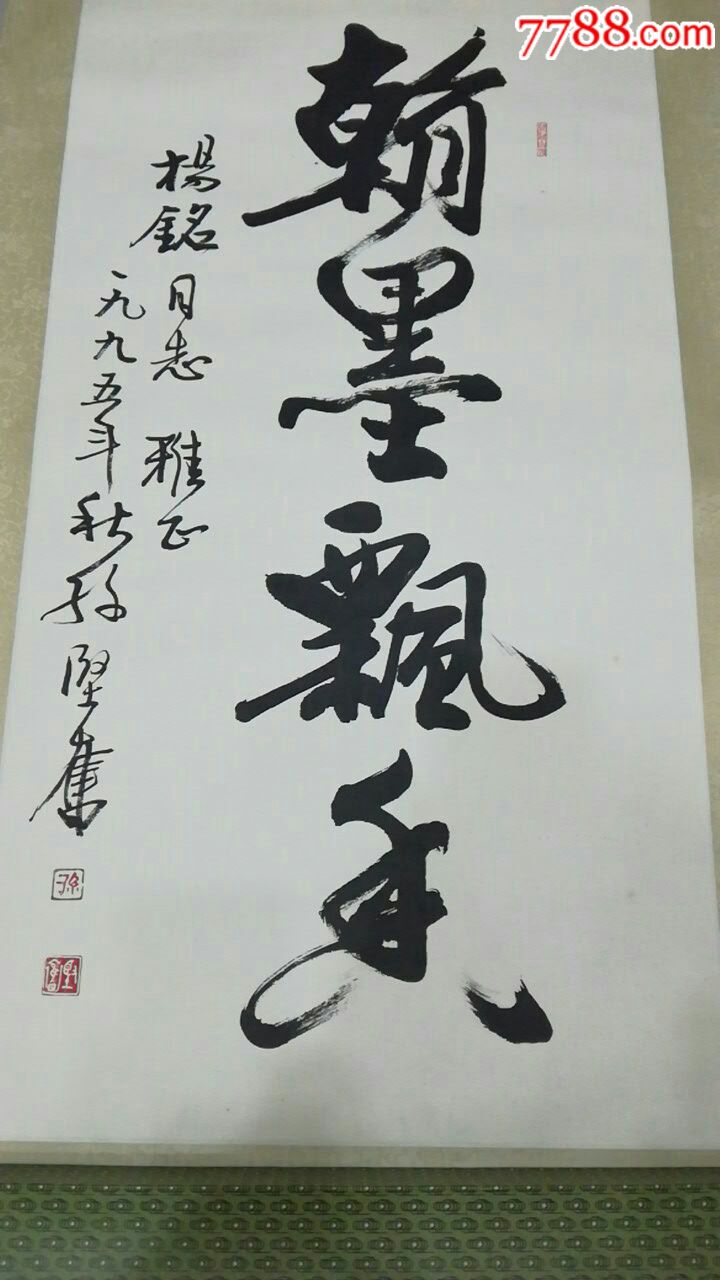 7788.com
翰墨飄香
楊銘同志 雅正
一九九五年秋孙堅奮
孫
堅奮